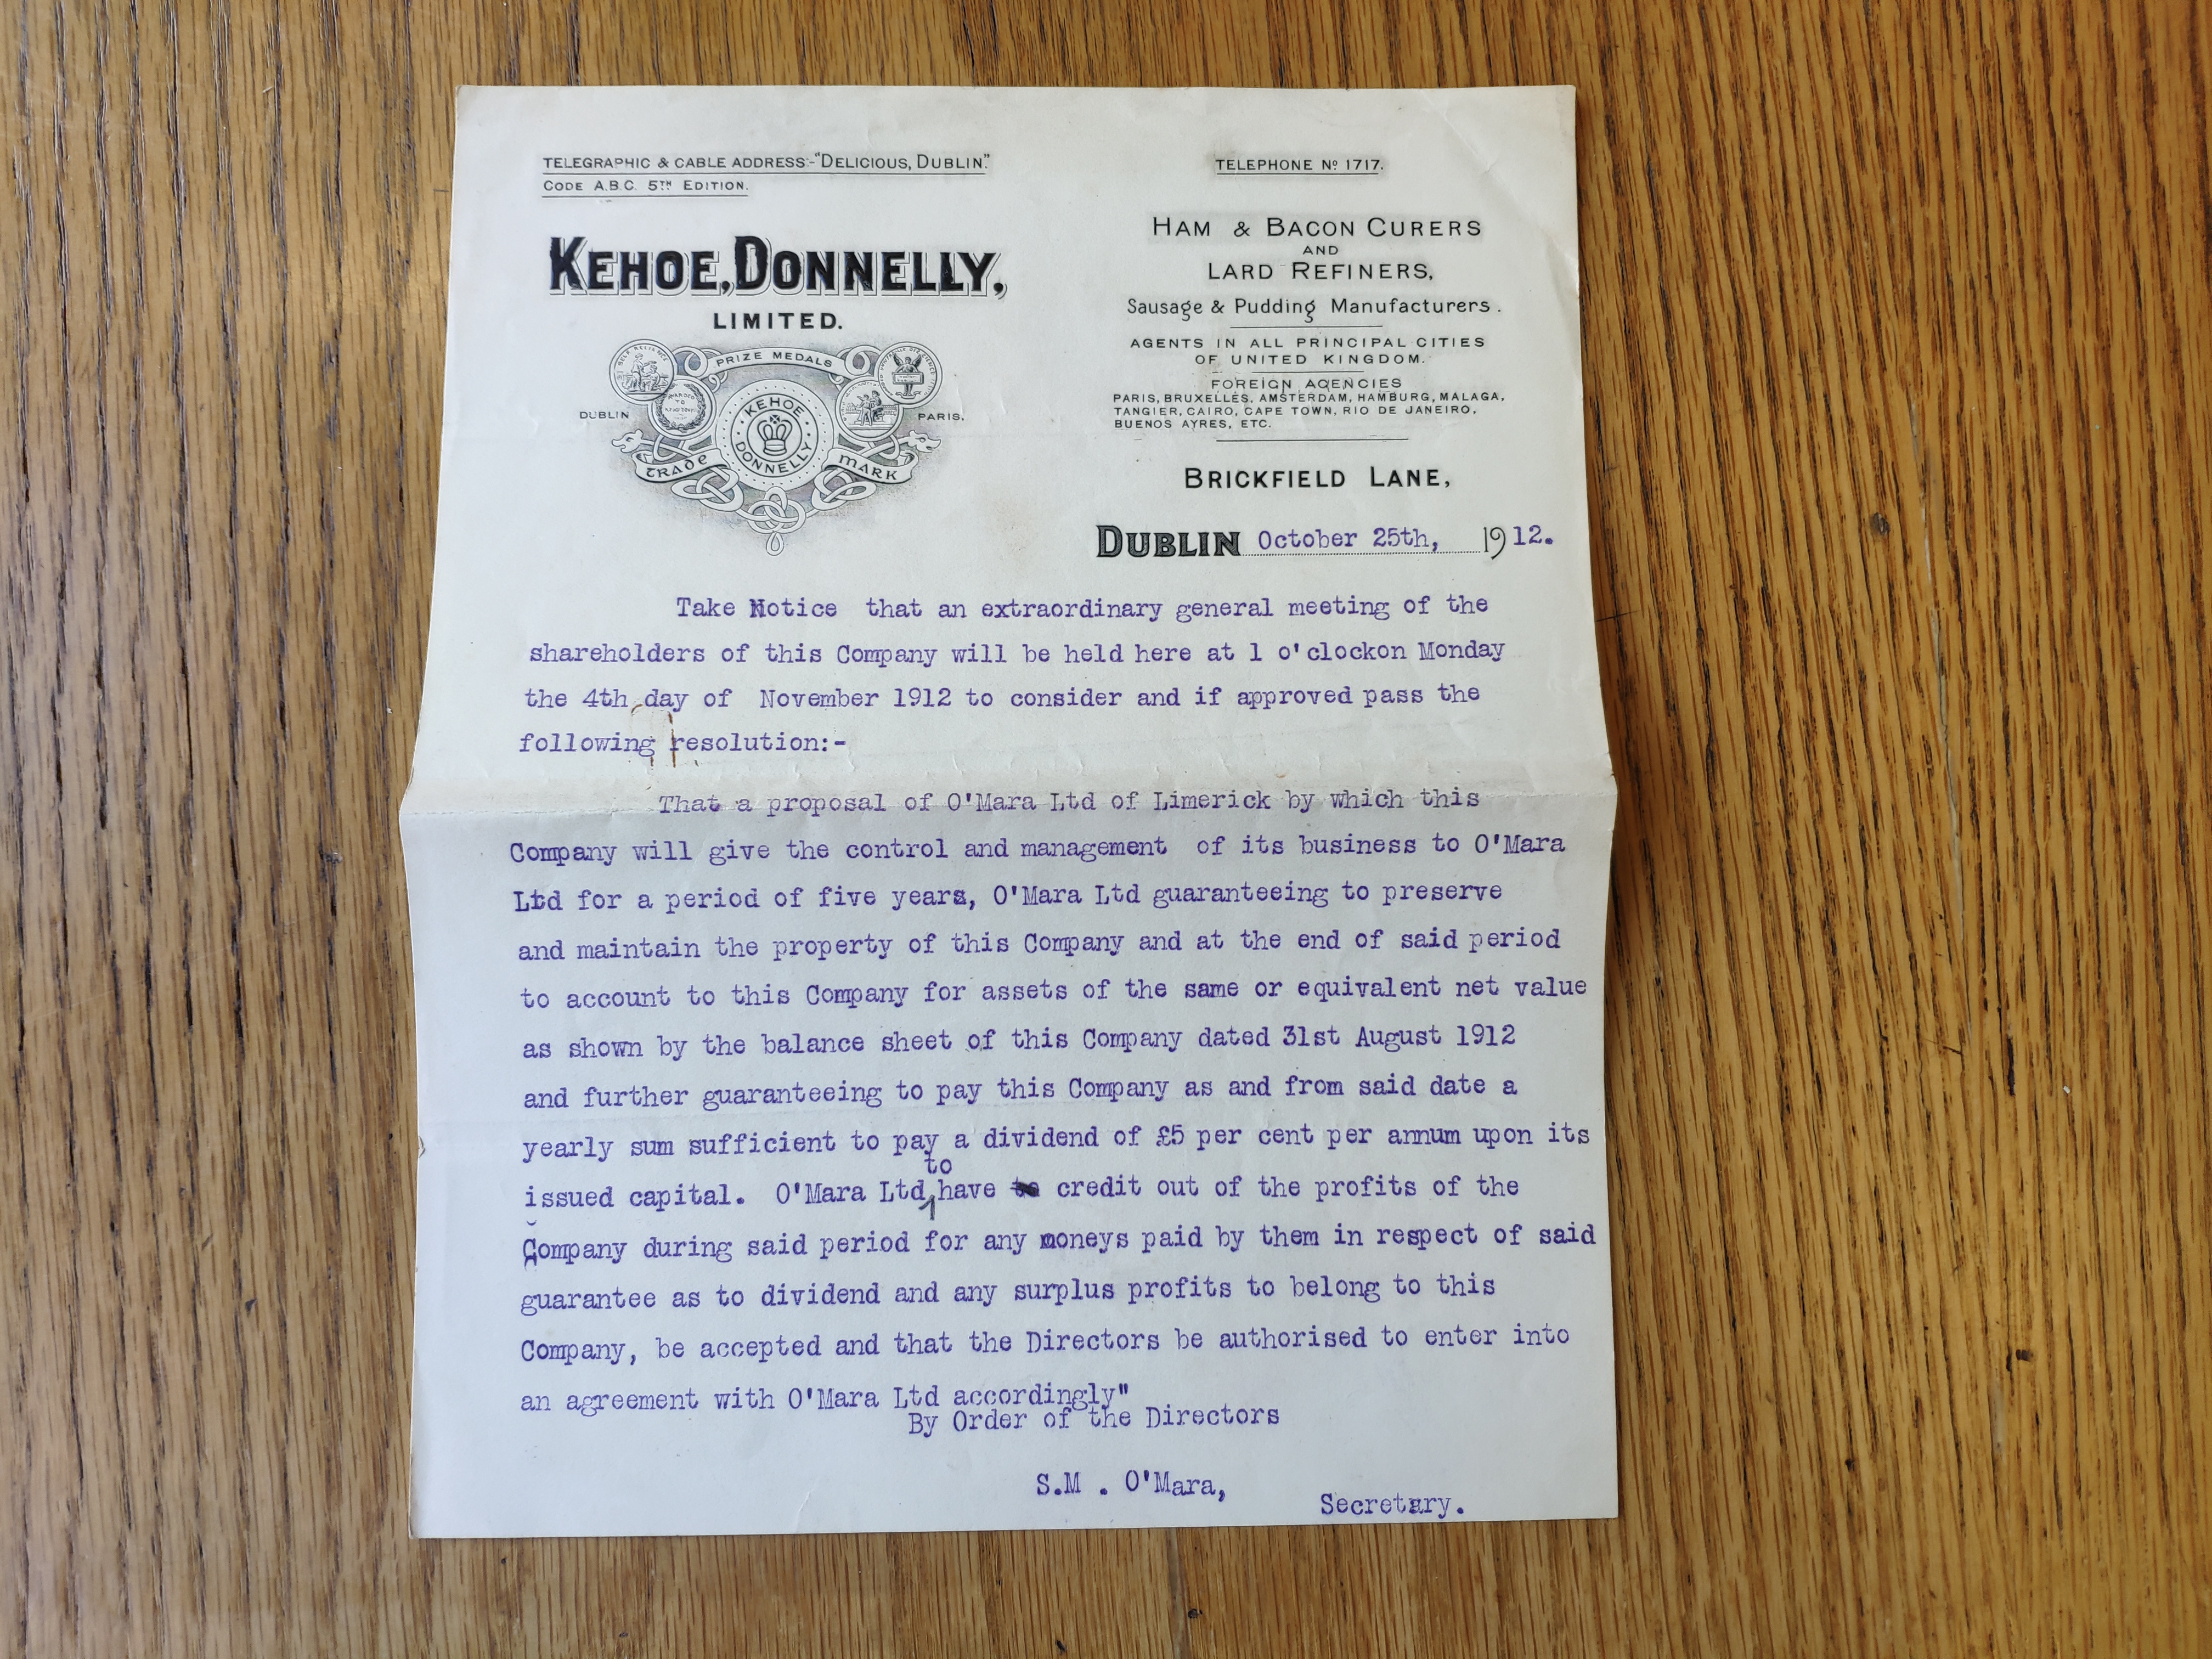 TELEGRAPHIC & CABLE ADDRESS:-"DELICIOUS, DUBLIN."
CODE A.B.C. 5TH EDITION.
TELEPHONE No 1717.
KEHOE, DONNELLY,
LIMITED.
PRIZE MEDALS
DUBLIN
PARIS.
KEHOE
DONNELLY
TRADE
MARK
HAM & BACON CURERS
AND
LARD REFINERS,
Sausage & Pudding Manufacturers.
AGENTS IN ALL PRINCIPAL CITIES
OF UNITED KINGDOM.
FOREIGN AGENCIES
PARIS, BRUXELLES, AMSTERDAM, HAMBURG, MALAGA,
TANGIER, CAIRO, CAPE TOWN, RIO DE JANEIRO,
BUENOS AYRES, ETC.
BRICKFIELD LANE,
DUBLIN October 25th, 1912.
Take Notice that an extraordinary general meeting of the
shareholders of this Company will be held here at 1 o'clockon Monday
the 4th day of November 1912 to consider and if approved pass the
following resolution:-
That a proposal of O'Mara Ltd of Limerick by which this
Company will give the control and management of its business to O'Mara
Ltd for a period of five years, O'Mara Ltd guaranteeing to preserve
and maintain the property of this Company and at the end of said period
to account to this Company for assets of the same or equivalent net value
as shown by the balance sheet of this Company dated 31st August 1912
and further guaranteeing to pay this Company as and from said date a
yearly sum sufficient to pay a dividend of £5 per cent per annum upon its
to
issued capital. O'Mara Ltd have credit out of the profits of the
Company during said period for any moneys paid by them in respect of said
guarantee as to dividend and any surplus profits to belong to this
Company, be accepted and that the Directors be authorised to enter into
an agreement with O'Mara Ltd accordingly"
By Order of the Directors
S.M . O'Mara,
Secretary.